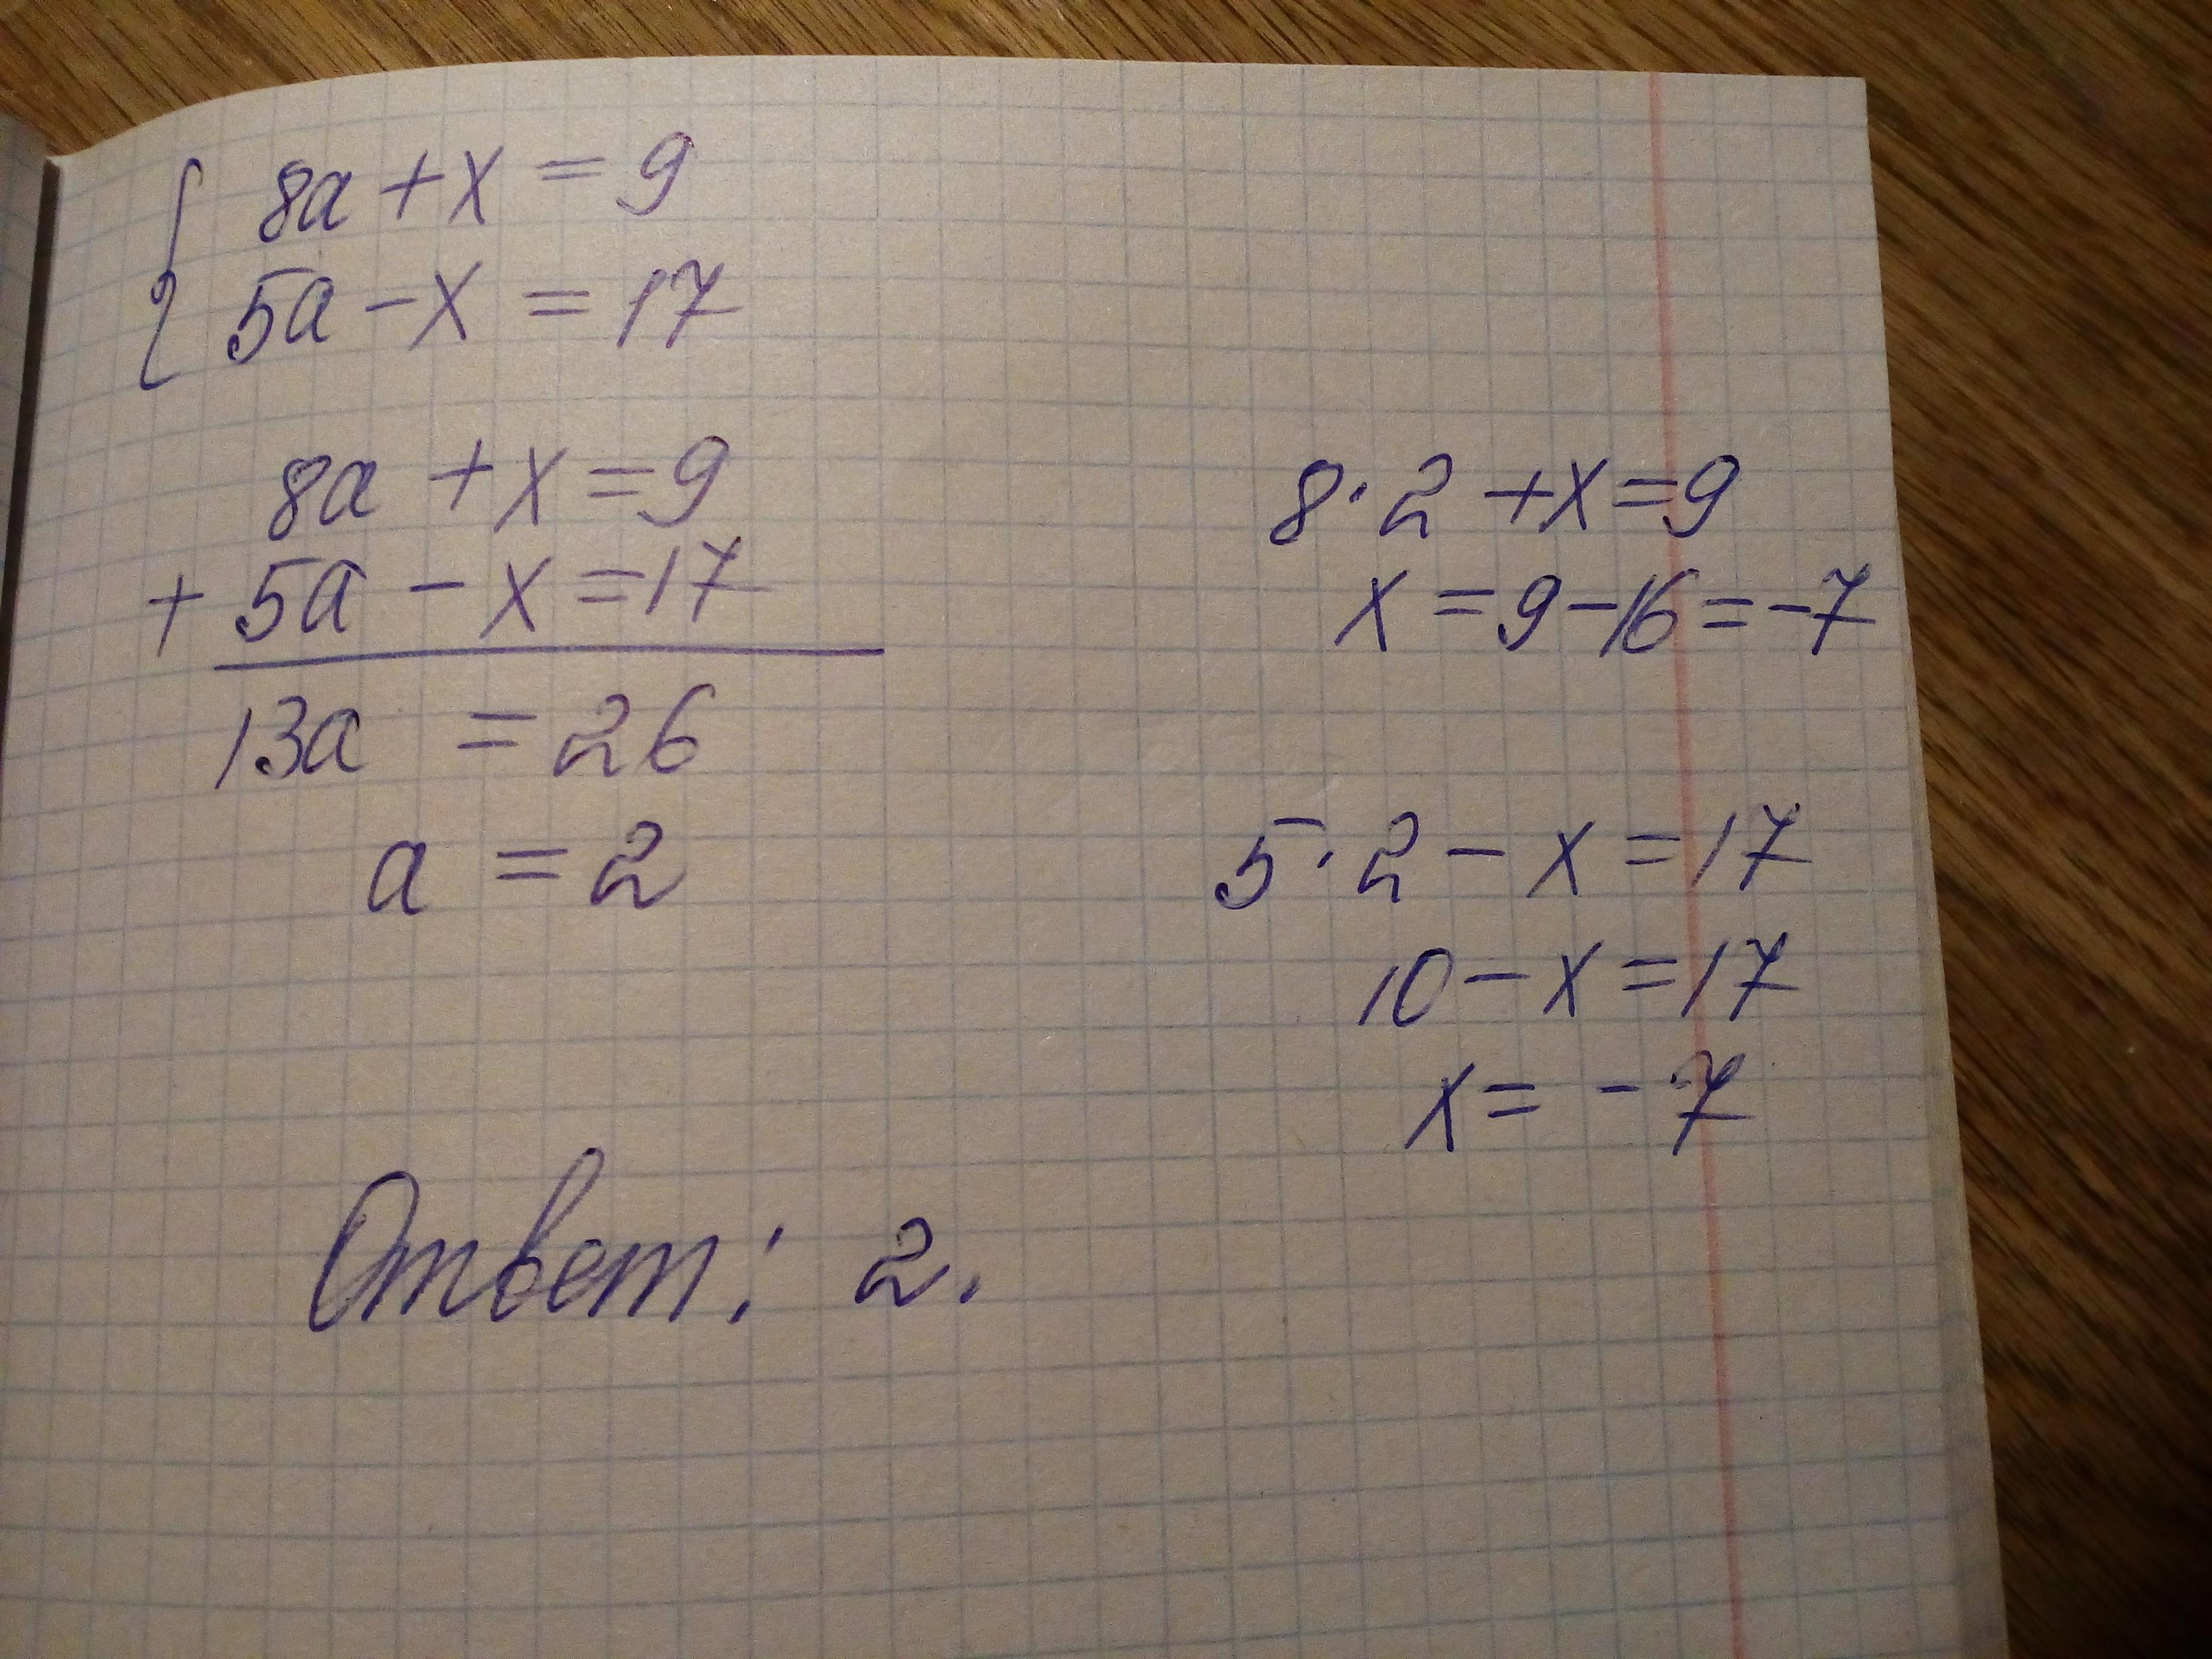 8a + x = 9
5a - x = 17
8a + x = 9
+ 5a - x = 17
13a = 26
a = 2
8 · 2 + x = 9
x = 9 - 16 = -7
5 · 2 - x = 17
10 - x = 17
x = -7
Ответ: 2.